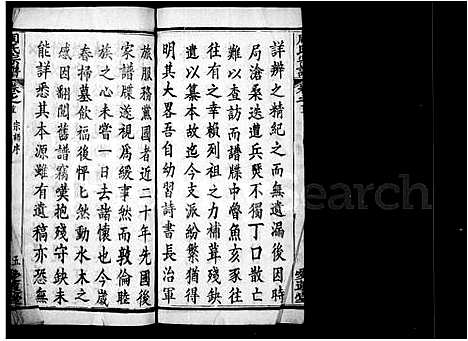 詳辨之精紀之而無遺漏後因時
局滄桑迭遭兵燹不獨丁口散亡
難以查訪而譜牒中魯魚亥豕往
往有之幸賴列祖之力補葺殘缺
遂以纂本故迄今支派紛繁猶得
明其大畧吾自幼習詩書長治軍
旅服務黨國者近二十年先國後
家譜牒遂視為緩事而敦倫睦
族之心未嘗一日去諸懷也今歲
春掃墓飲福後怦匕然動水木之
感因翻閱舊譜竊獎抱殘守缺未
能詳悉其本源雖有遺稿亦恐無
氏宗譜
卷之
宗譜序
五
search